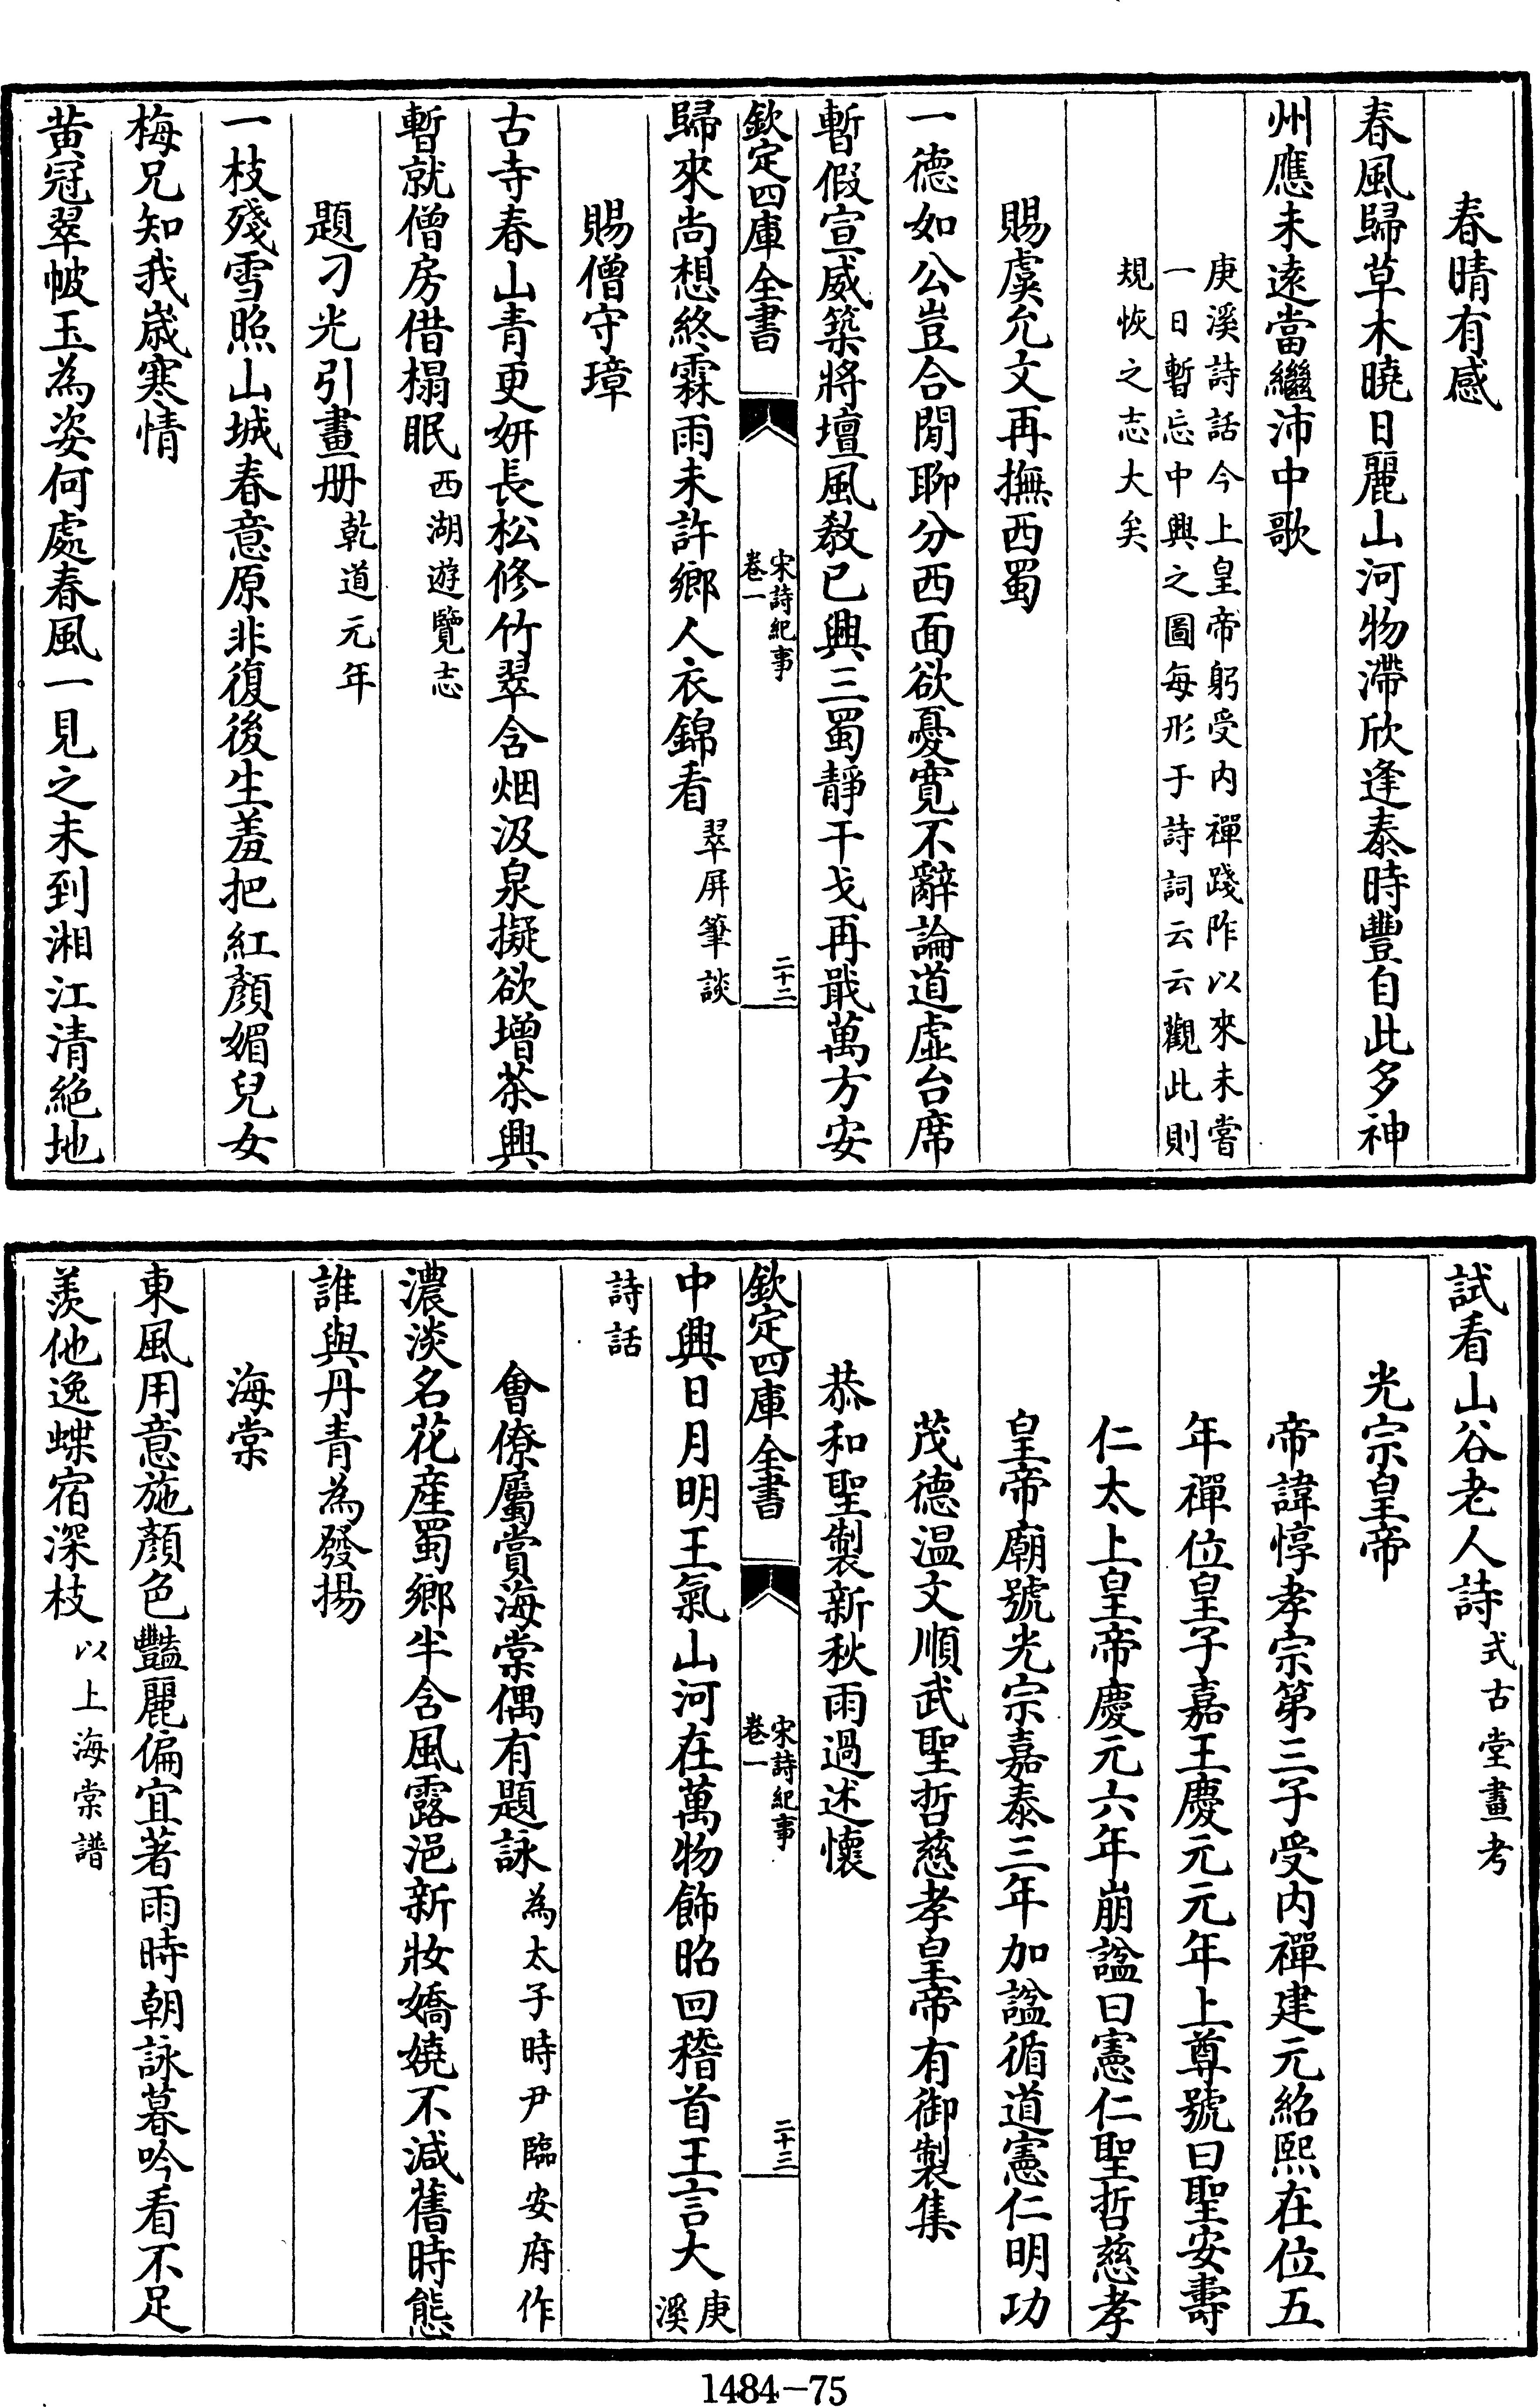 春晴有感
春風歸草木曉日麗山河物滯欣逢泰時豐自此多神
州應未遠當繼沛中歌
庚溪詩話今上皇帝躬受内禪踐阼以來未嘗
一日暫忘中興之圖每形于詩詞云云觀此則
規恢之志大矣
賜虞允文再撫西蜀
一德如公豈合閒聊分西面欲憂寛不辭論道虛台席
暫假宣威築將壇風教已興三蜀靜干戈再戢萬方安
欽定四庫全書
宋詩紀事
卷一
二十二
歸來尚想終霖雨未許鄉人衣錦看翠屏筆談
賜僧守璋
古寺春山青更妍長松修竹翠含烟汲泉擬欲增茶興
暫就僧房借榻眠西湖遊覽志
題刁光引畫册乾道元年
一枝殘雪照山城春意原非復後生羞把紅顏媚兒女
梅兄知我歲寒情
黄冠翠帔玉為姿何處春風一見之未到湘江清絶地
試看山谷老人詩式古堂畫考
光宗皇帝
帝諱惇孝宗第三子受内禪建元紹熙在位五
年禪位皇子嘉王慶元元年上尊號曰聖安壽
仁太上皇帝慶元六年崩諡曰憲仁聖哲慈孝
皇帝廟號光宗嘉泰三年加諡循道憲仁明功
茂德温文順武聖哲慈孝皇帝有御製集
恭和聖製新秋雨過述懷
欽定四庫全書
宋詩紀事
卷一
二十三
中興日月明王氣山河在萬物飾昭回稽首王言大庚溪
詩話
會僚屬賞海棠偶有題詠為太子時尹臨安府作
濃淡名花産蜀鄉半含風露浥新妝嬌嬈不減舊時態
誰與丹青為發揚
海棠
東風用意施顏色豔麗偏宜著雨時朝詠暮吟看不足
羨他逸蝶宿深枝以上海棠譜
1484-75